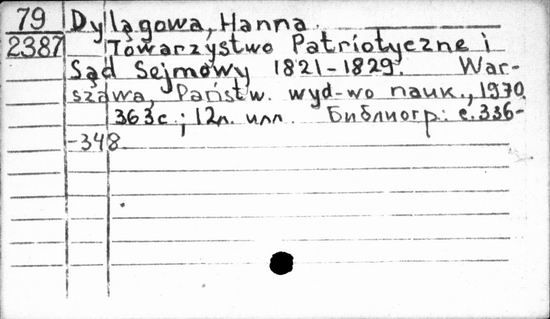 79 Dylągowa, Hanna.
2387 Towarzystwo Patriotyczne i
Sąd Sejmowy 1821-1829. War-
szawa, Państw. wyd-wo nauk., 1970.
363c.; 12л. илл. Библиогр: с. 336-
-348.